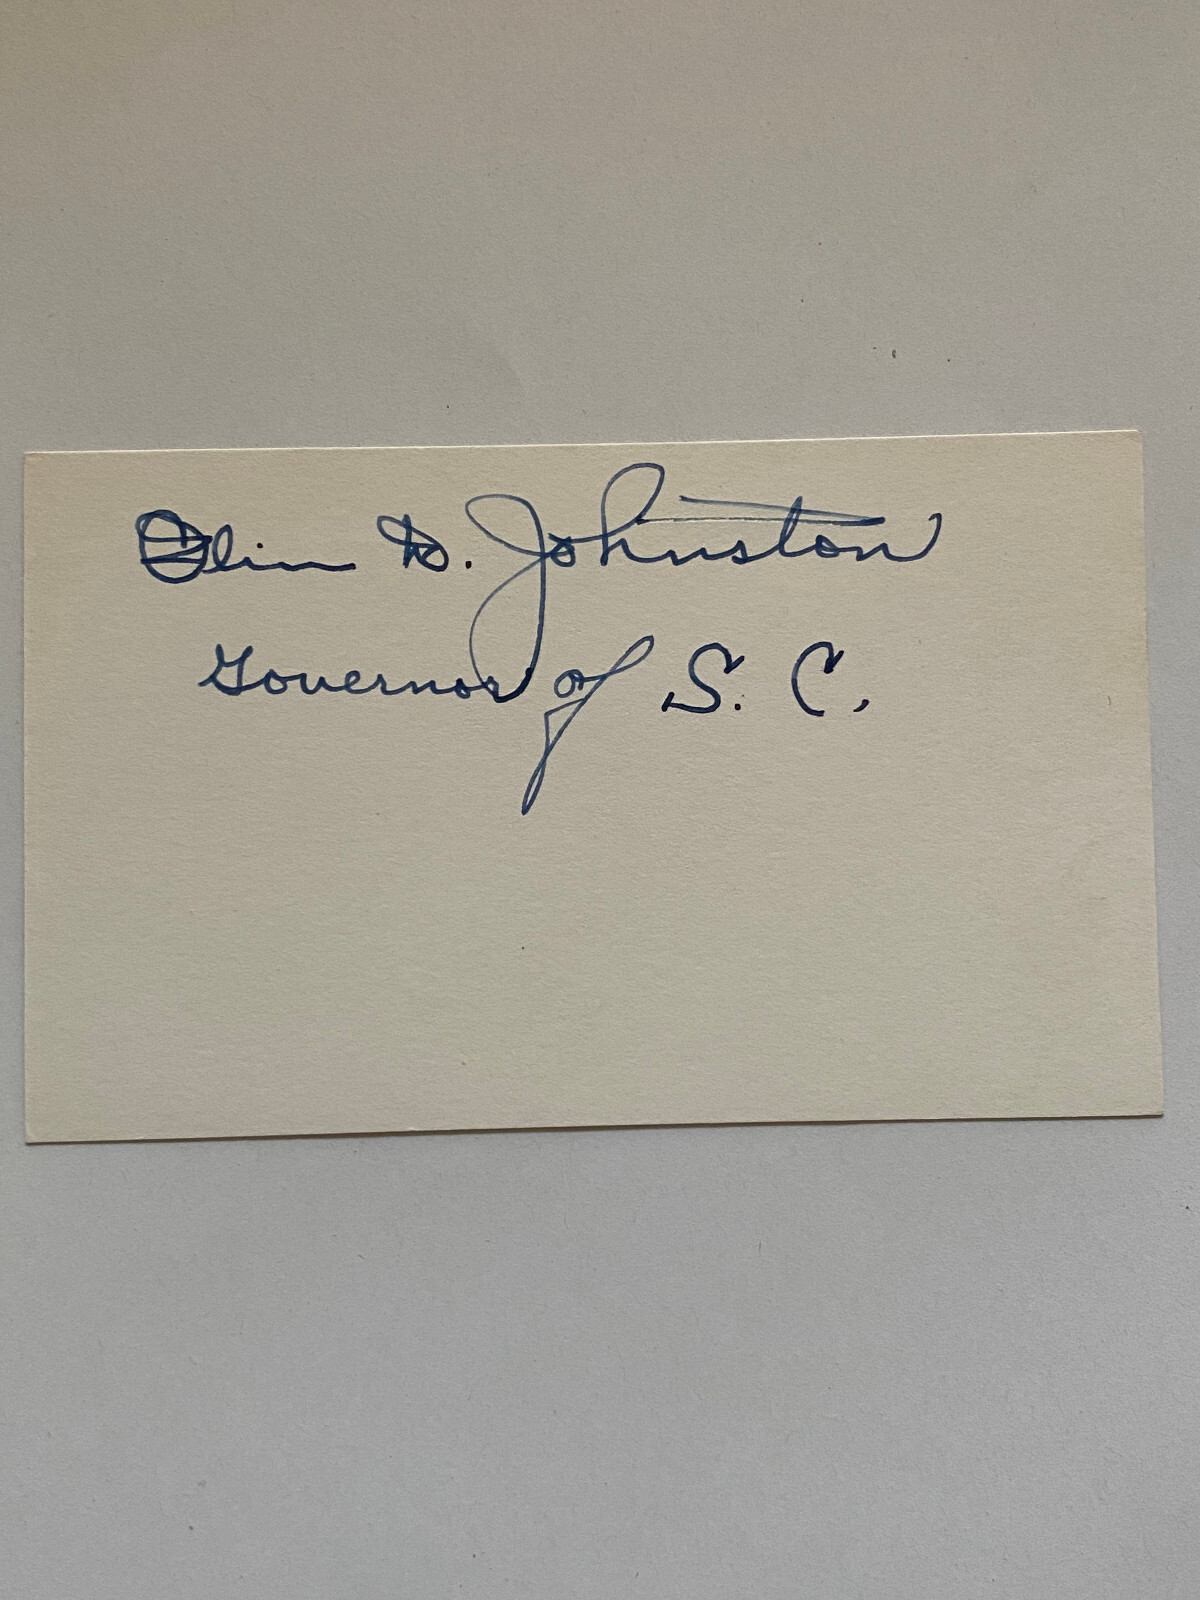 Olin D. Johnston
Governor of S. C.